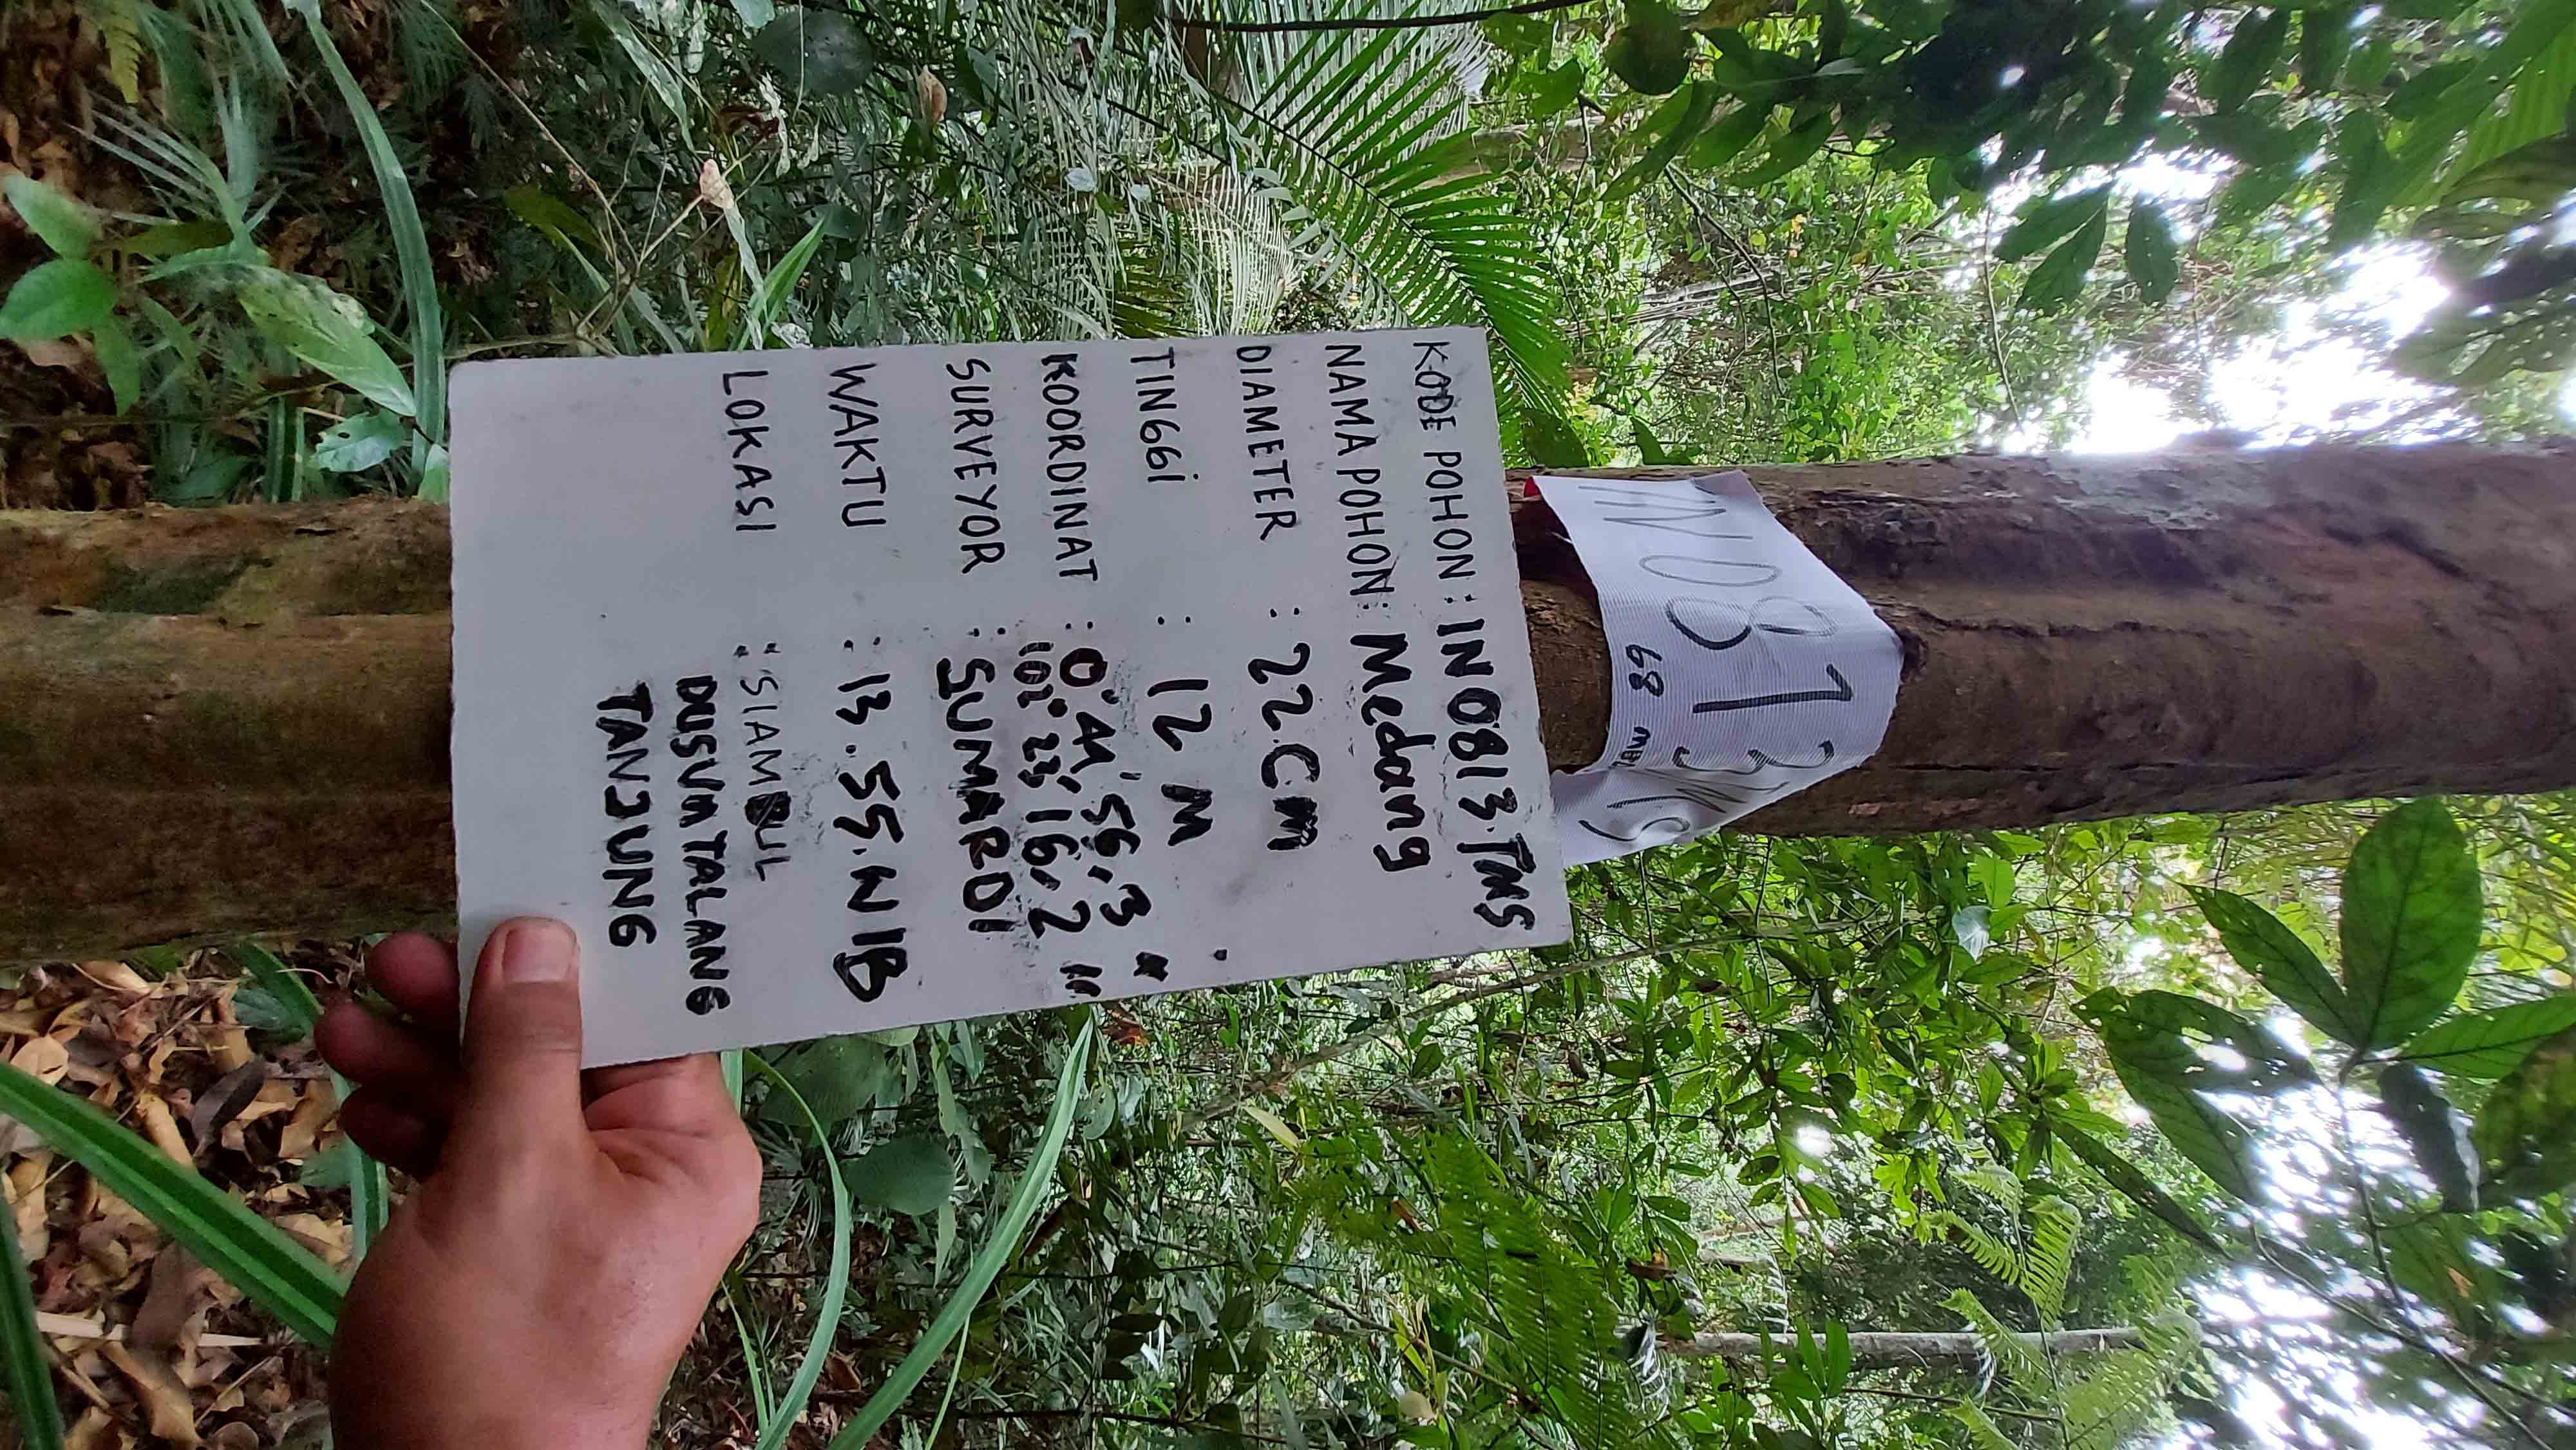 IN0813TMS
68
KODE POHON : IN0813.TMS
NAMA POHON: Medang
DIAMETER : 22.CM
TINGGI : 12 M
KOORDINAT : 0° 44' 56,3 "
102° 23' 16,2 "
SURVEYOR : SUMARDI
WAKTU : 13.55.WIB
LOKASI : SIAMBUL
DUSUN TALANG
TANJUNG